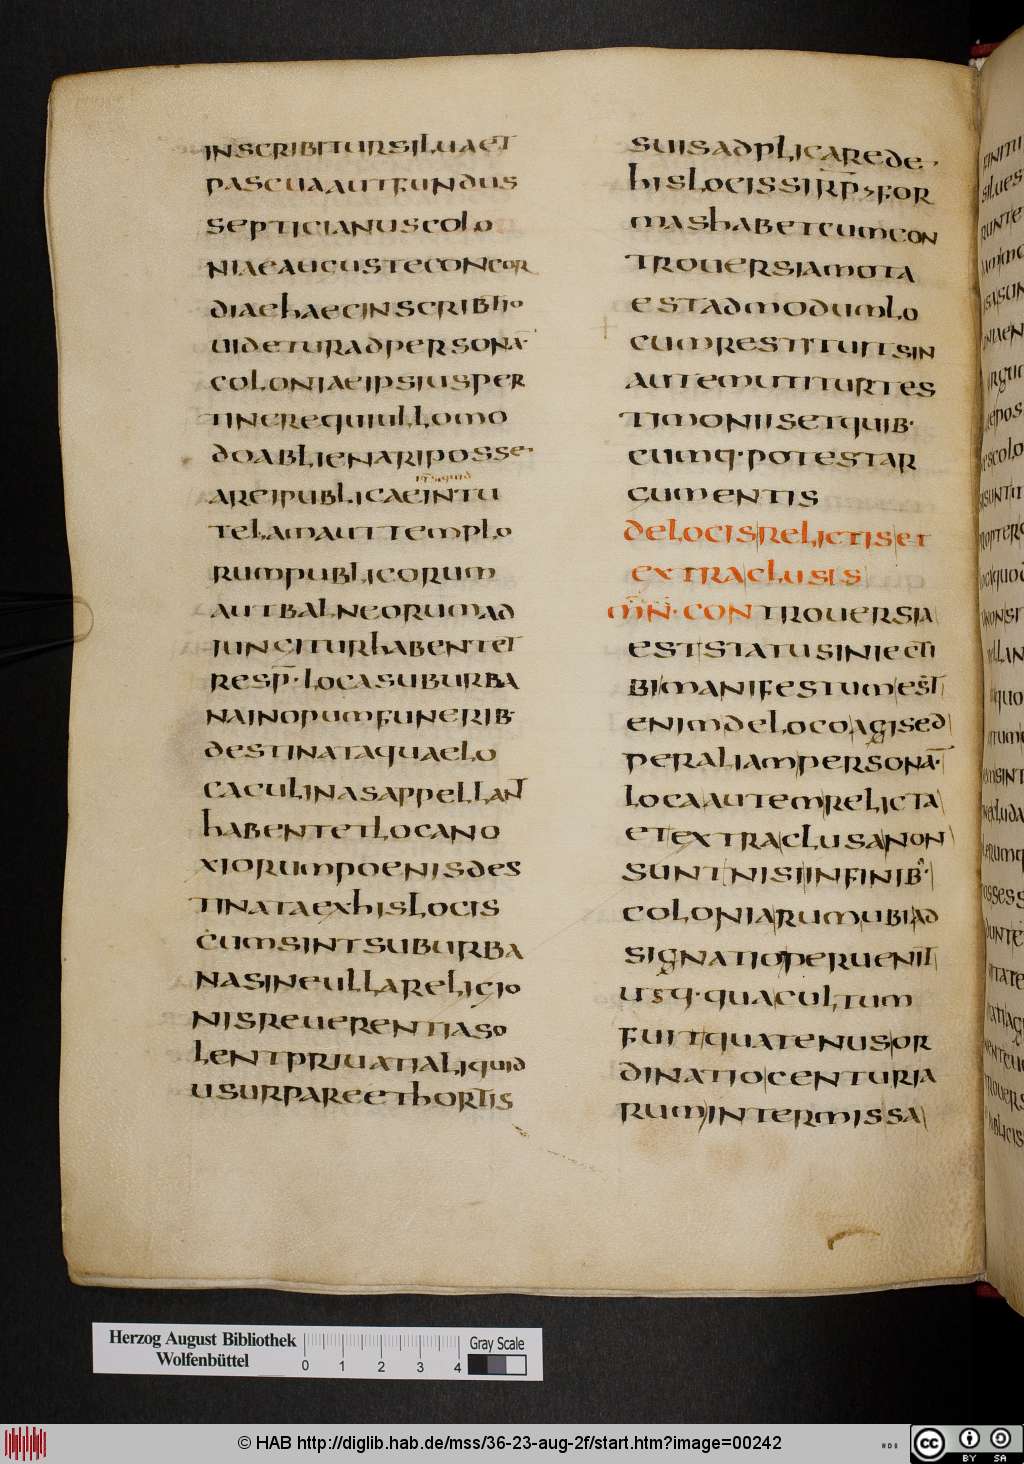 INSCRIBITURSILUAET
PASCUAAUTFUNDUS
SEPTICIANUSCOLO
NIAEAUGUSTECONCOR
DIAEHAECINSCRIBTIO
UIDETURADPERSONĀ·
COLONIAEIPSIUSPER
TINEREQUIULLOMO
DOABLIENARIPOSSE·
AREIPUBLICAEINTU
TELAMAUTTEMPLO
RUMPUBLICORUM
AUTBALNEORUMAD
IUNGITURHABENTET
RESP̄·LOCASUBURBA
NAINOPUMFUNERIB·
DESTINATAQUAELO
CACULINASAPPELLANT
HABENTETLOCANO
XIORUMPOENISDES
TINATAEXHISLOCIS
CUMSINTSUBURBA
NASINEULLARELIGIO
NISREUERENTIASO
LENTPRIUATIALIQUID
USURPAREETHORTIS
SUISADPLICAREDE·
HISLOCISSIRP̄>FOR
MASHABETCUMCON
TROUERSIAMOTA
ESTADMODUMLO
CUMRESTITUITSIN
AUTEMUTITURTES
TIMONIISETQUIB·
CUMQ·POTESTAR
GUMENTIS
DELOCISRELICTISET
EXTRACLUSIS
M̄N̄·CONTROUERSIA
ESTSTATUSINIECTI
BIMANIFESTUMEST
ENIMDELOCOAGISED
PERALIAMPERSONĀ·
LOCAAUTEMRELICTA
ETEXTRACLUSANON
SUNTNISIINFINIB·
COLONIARUMUBIAD
SIGNATIOPERUENIT
USQ·QUACULTUM
FUITQUATENUSOR
DINATIOCENTURIA
RUMINTERMISSA
Herzog August Bibliothek
Wolfenbüttel
0 1 2 3 4
Gray Scale
© HAB http://diglib.hab.de/mss/36-23-aug-2f/start.htm?image=00242
HAB
CC BY SA